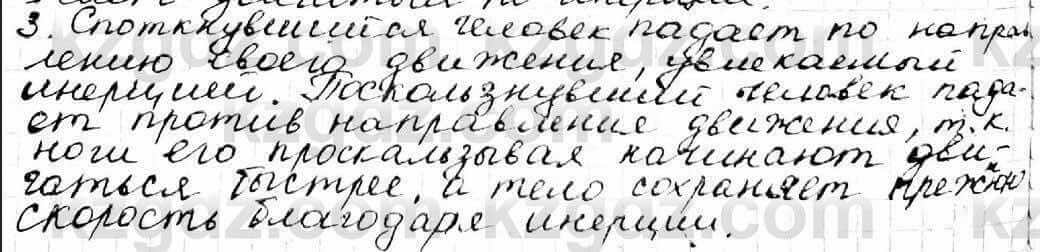 3. Споткнувшийся человек падает по направ
лению своего движения, увлекаемый
инерцией. Поскользнувший человек пада-
ет против направления движения, т.к.
ноги его проскальзывая начинают дви-
гаться быстрее, а тело сохраняет прежнюю
скорость благодаря инерции.